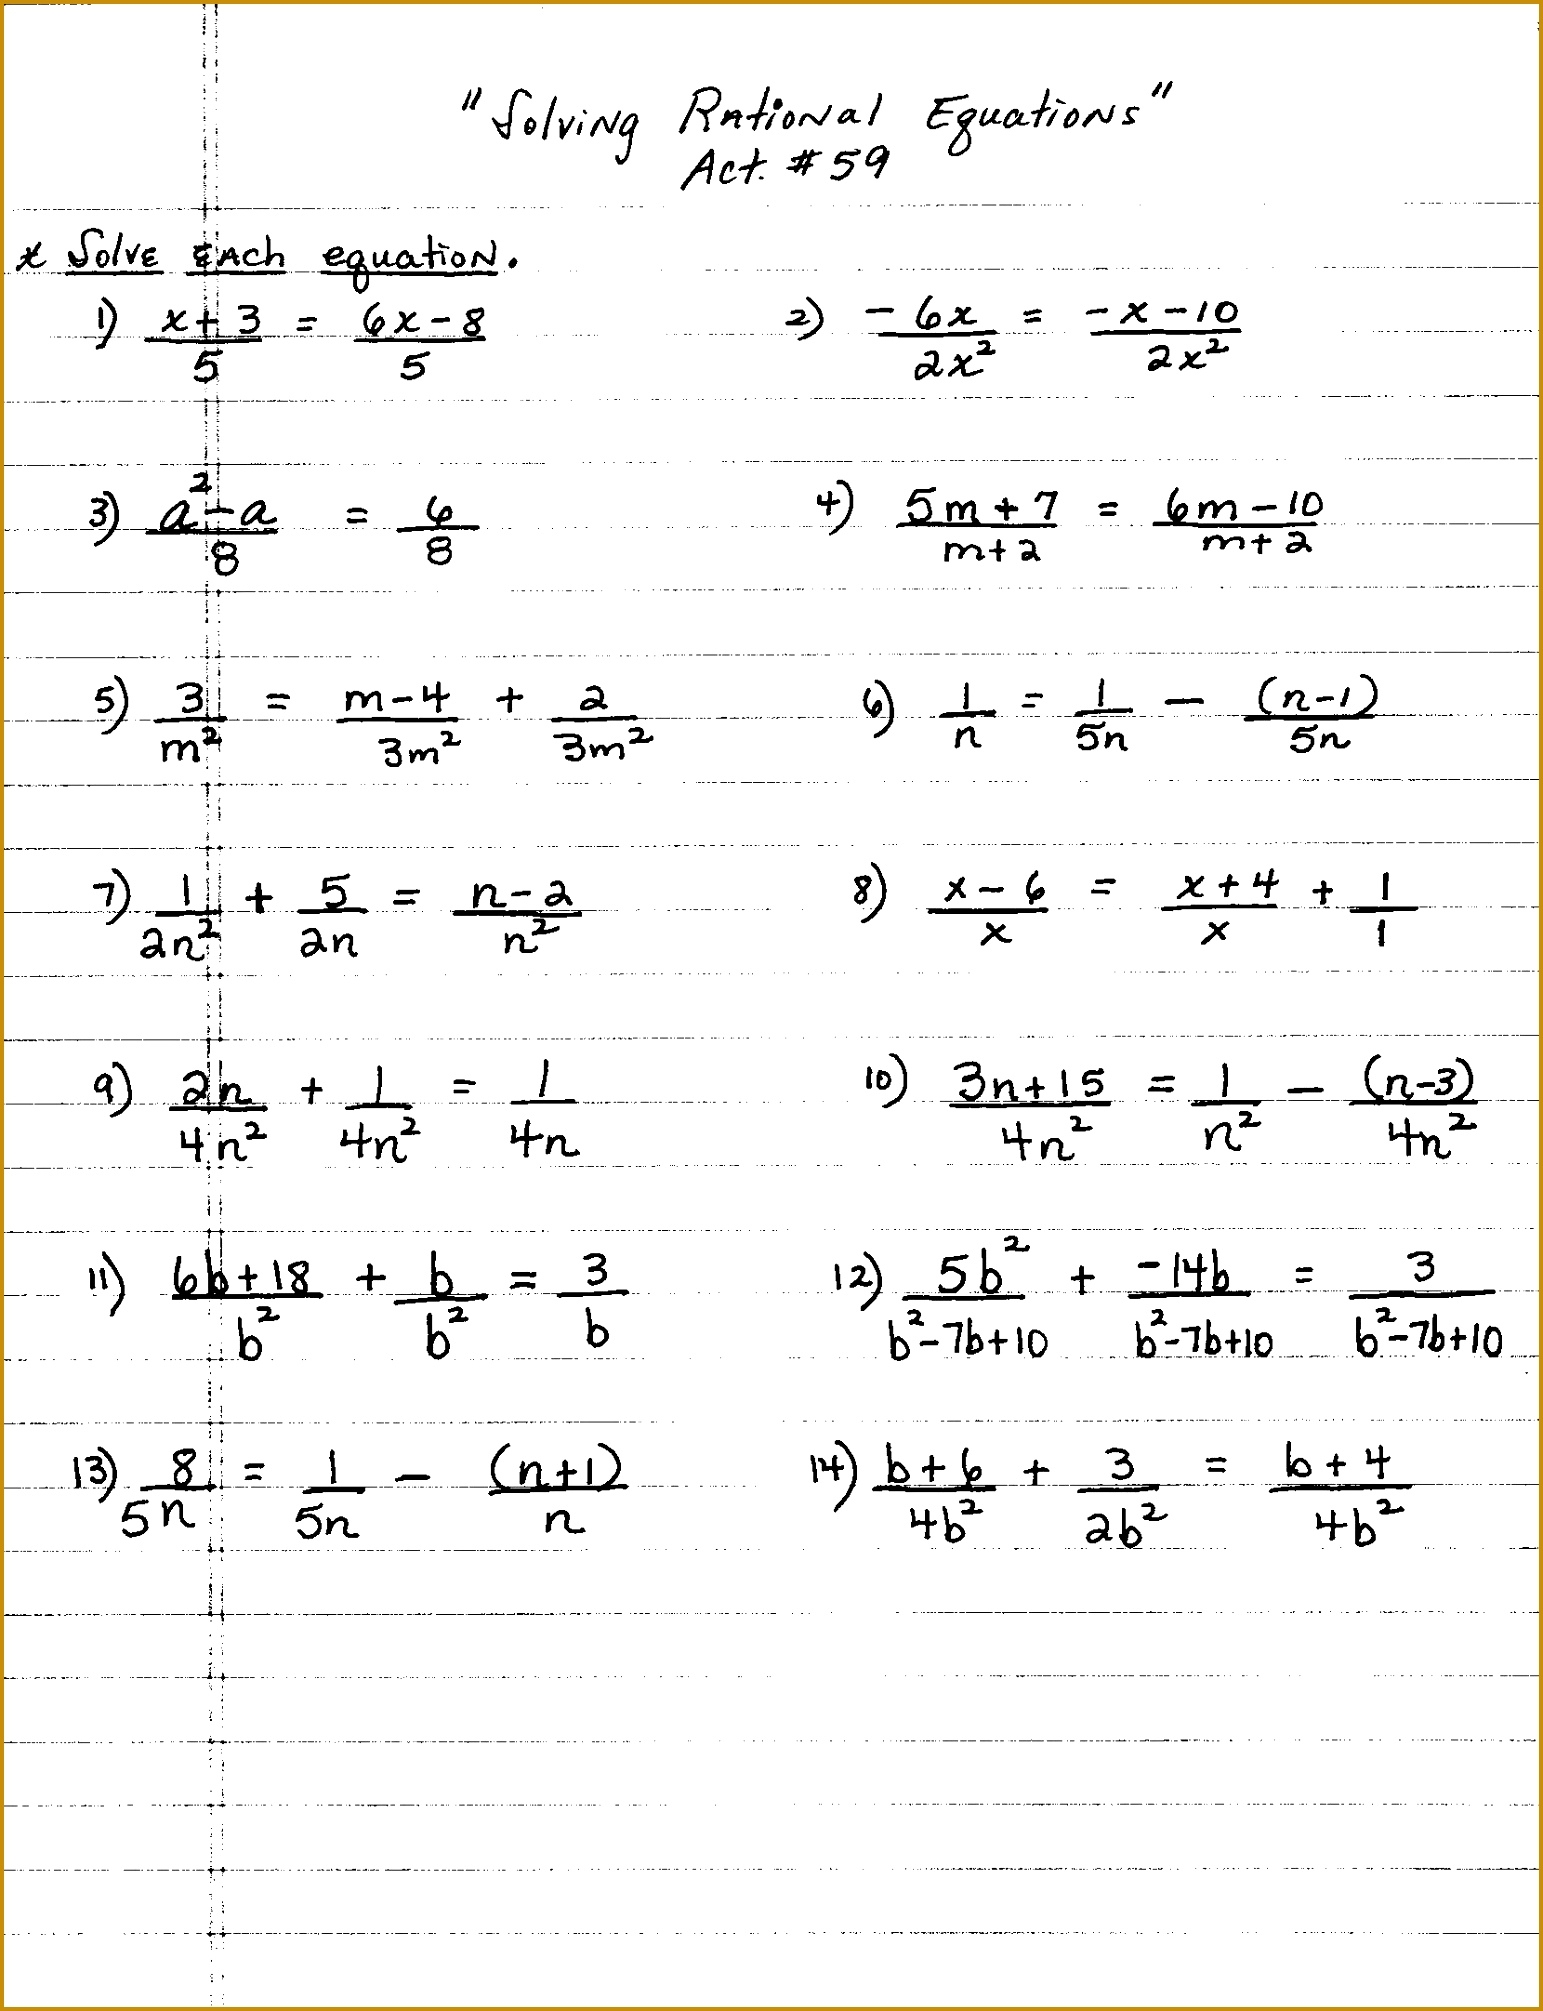 "Solving Rational Equations"
Act. #59
* Solve Each equation.
1) (x+3)/5 = (6x-8)/5 2) -6x/2x² = (-x-10)/2x²
3) (a²-a)/8 = 6/8 4) (5m+7)/(m+2) = (6m-10)/(m+2)
5) 3/m² = (m-4)/3m² + 2/3m² 6) 1/n = 1/5n - (n-1)/5n
7) 1/2n² + 5/2n = (n-2)/n² 8) (x-6)/x = (x+4)/x + 1/1
9) 2n/4n² + 1/4n² = 1/4n 10) (3n+15)/4n² = 1/n² - (n-3)/4n²
11) (6b+18)/b² + b/b² = 3/b 12) 5b²/(b²-7b+10) + -14b/(b²-7b+10) = 3/(b²-7b+10)
13) 8/5n = 1/5n - (n+1)/n 14) (b+6)/4b² + 3/2b² = (b+4)/4b²